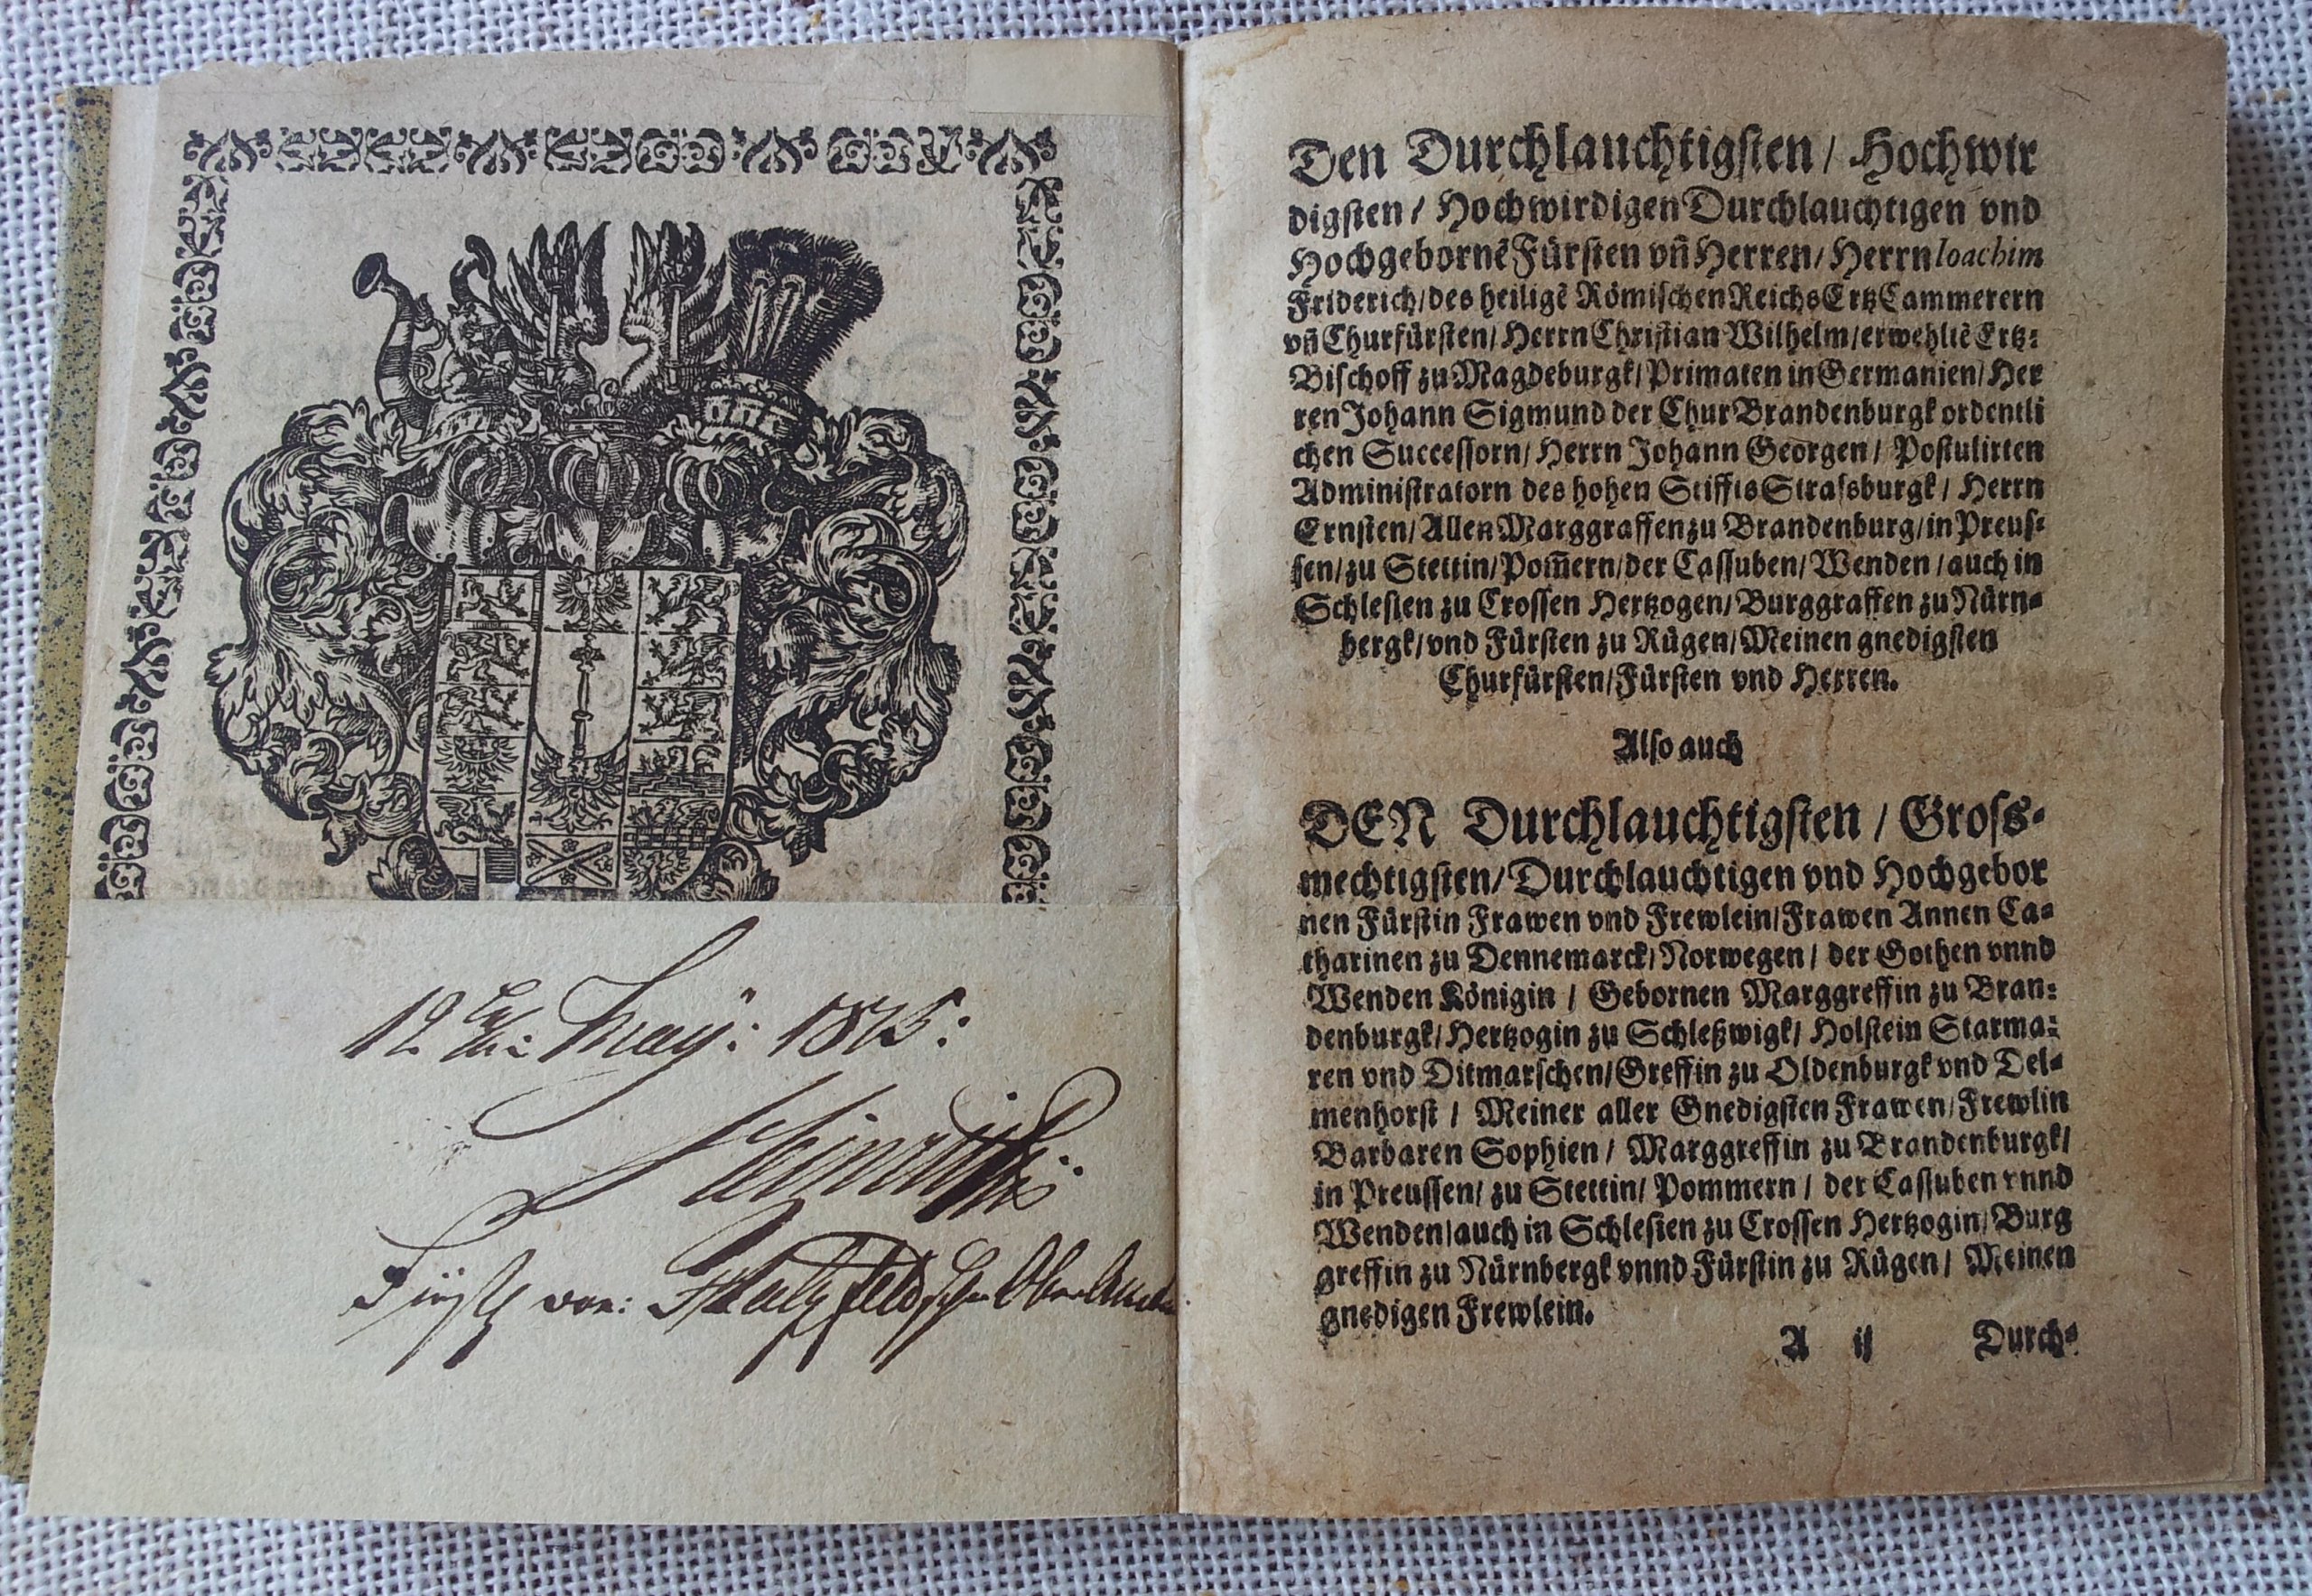 12 May: 1875:
Fürstl von: Hatzfeld
Den Durchlauchtigsten / Hochwir
digsten / Hochwirdigen Durchlauchtigen vnd
Hochgebornē Fürsten vñ Herren / Herrn Ioachim
Friderich / des heiligē Römischen Reichs Ertz Cammerern
vñ Churfürsten / Herrn Christian Wilhelm / erwehltē Ertz⸗
Bischoff zu Magdeburgk / Primaten in Germanien / Her
ren Johann Sigmund der Chur Brandenburgk ordentli
chen Successorn / Herrn Johann Georgen / Postulirten
Administratorn des hohen Stiffts Strassburgk / Herrn
Ernsten / Allen Marggraffen zu Brandenburg / in Preus⸗
sen / zu Stettin / Pom̄ern / der Cassuben / Wenden / auch in
Schlesien zu Crossen Hertzogen / Burggraffen zu Nürn⸗
bergk / vnd Fürsten zu Rügen / Meinen gnedigsten
Churfürsten / Fürsten vnd Herren.
Also auch
DEN Durchlauchtigsten / Gross⸗
mechtigsten / Durchlauchtigen vnd Hochgebor
nen Fürstin Frawen vnd Frewlein / Frawen Annen Ca⸗
tharinen zu Dennemarck / Norwegen / der Gothen vnnd
Wenden Königin / Gebornen Marggreffin zu Bran⸗
denburgk / Hertzogin zu Schleßwigk / Holstein Starma⸗
ren vnd Ditmarschen / Greffin zu Oldenburgk vnd Del⸗
menhorst / Meiner aller Gnedigsten Frawen / Frewlin
Barbaren Sophien / Marggreffin zu Brandenburgk /
in Preussen / zu Stettin / Pommern / der Cassuben vnnd
Wenden / auch in Schlesien zu Crossen Hertzogin / Burg
greffin zu Nürnbergk vnnd Fürstin zu Rügen / Meinen
gnedigen Frewlein.
A ij Durch⸗